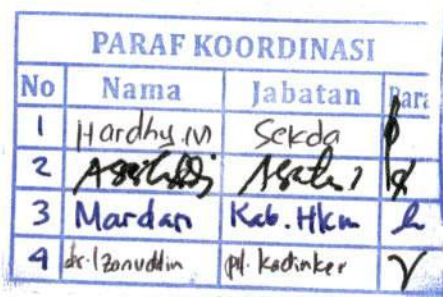 PARAF KOORDINASI
No Nama Jabatan Para
1 Hardhy.M Sekda
2
3 Mardan Kab. Hkm
4 dr. Izanuddin plt. Kadinker